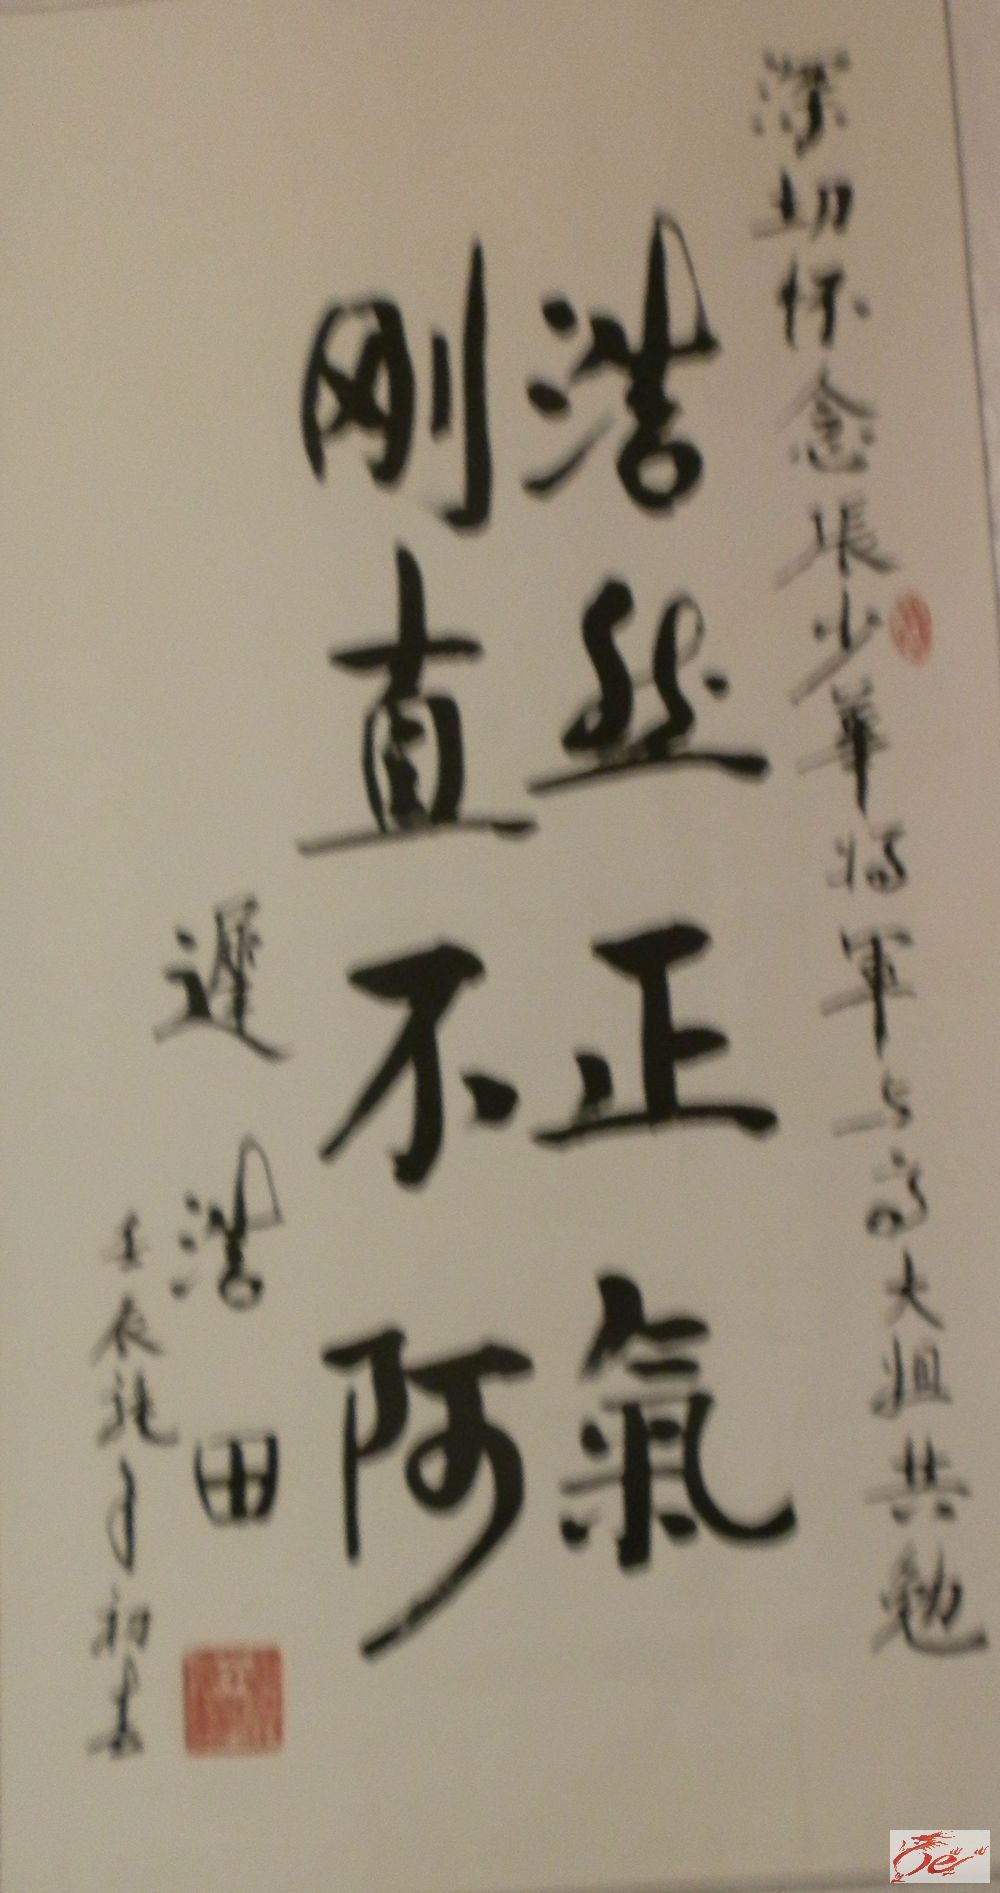 深切怀念張少華将軍与高大姐共勉
浩然正氣
刚直不阿
遲浩田
壬辰龍年初春